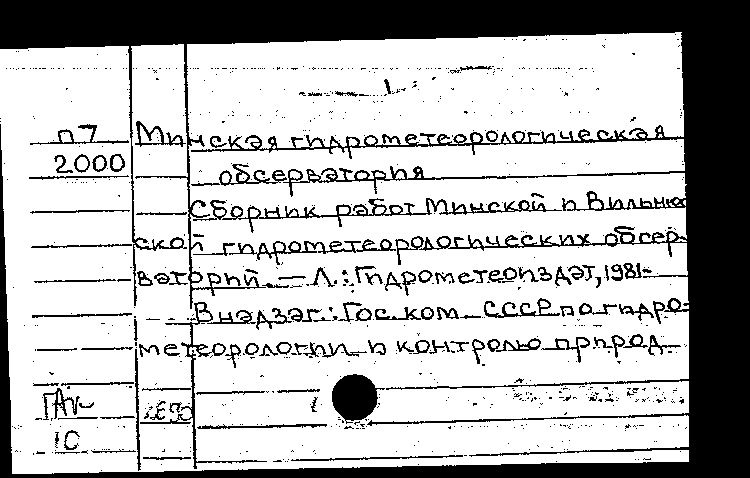 п7 Минская гидрометеорологическая
2000 обсерватория
Сборник работ Минской и Вильнюс
ской гидрометеорологических обсер-
ваторий. — Л.: Гидрометеоиздат, 1981-
В надзаг.: Гос. ком. СССР по гидро-
метеорологии и контролю природ.
10